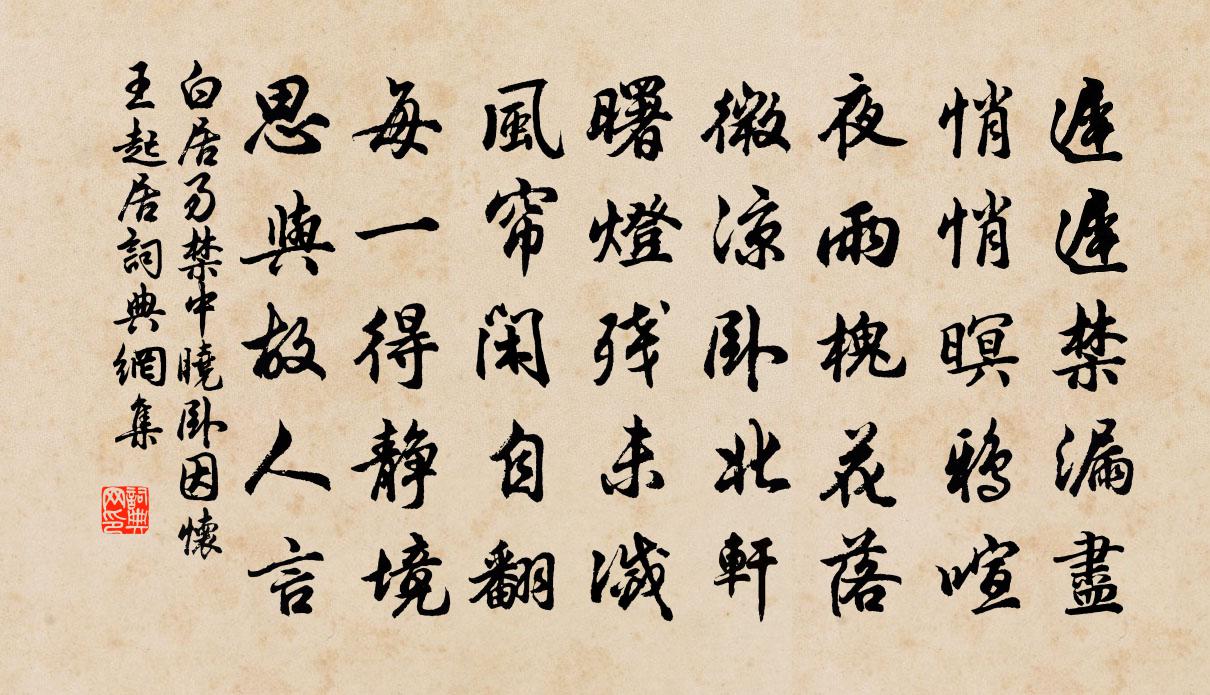 遲遲禁漏盡
悄悄暝鴉喧
夜雨槐花落
微涼卧北軒
曙燈殘未滅
風帘閑自翻
每一得靜境
思與故人言
白居易禁中曉卧因懷
王起居詞典網集
詞典
网印